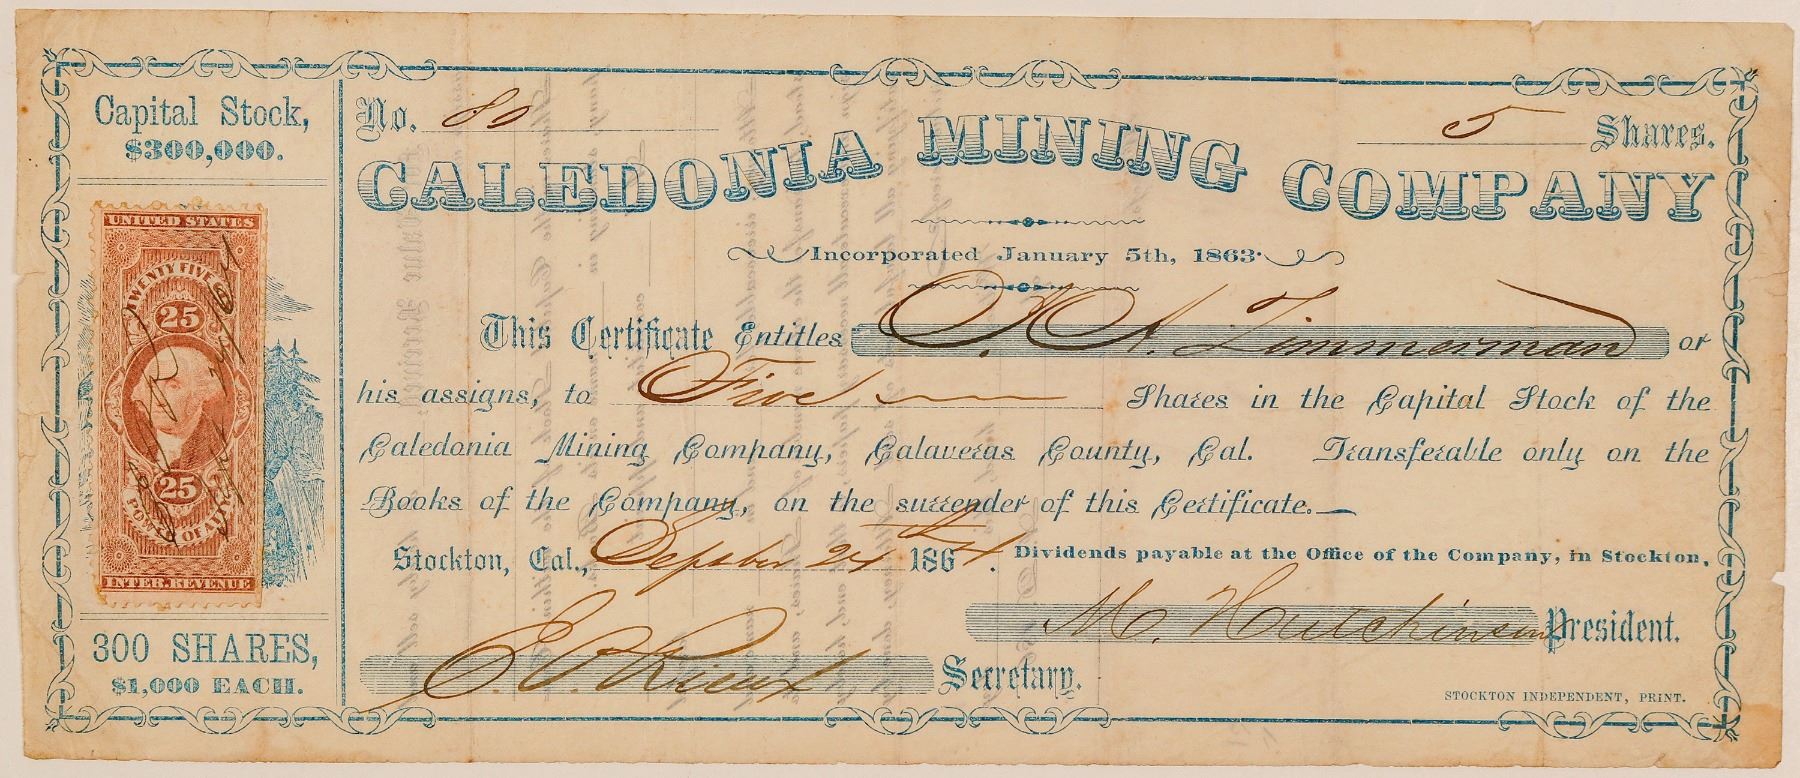 Capital Stock,
$300,000.
UNITED STATES
TWENTY FIVE
25
25
POWER OF ATT'Y
INTER. REVENUE
300 SHARES,
$1,000 EACH.
No. 80
5 Shares.
CALEDONIA MINING COMPANY
Incorporated January 5th, 1863.
This Certificate Entitles J. H. A. Zimmerman or
his assigns, to Five Shares in the Capital Stock of the
Caledonia Mining Company, Calaveras County, Cal. Transferable only on the
Books of the Company, on the surrender of this Certificate.
Stockton, Cal., September 24th 1864. Dividends payable at the Office of the Company, in Stockton.
M. Hutchinson President.
Secretary.
STOCKTON INDEPENDENT, PRINT.